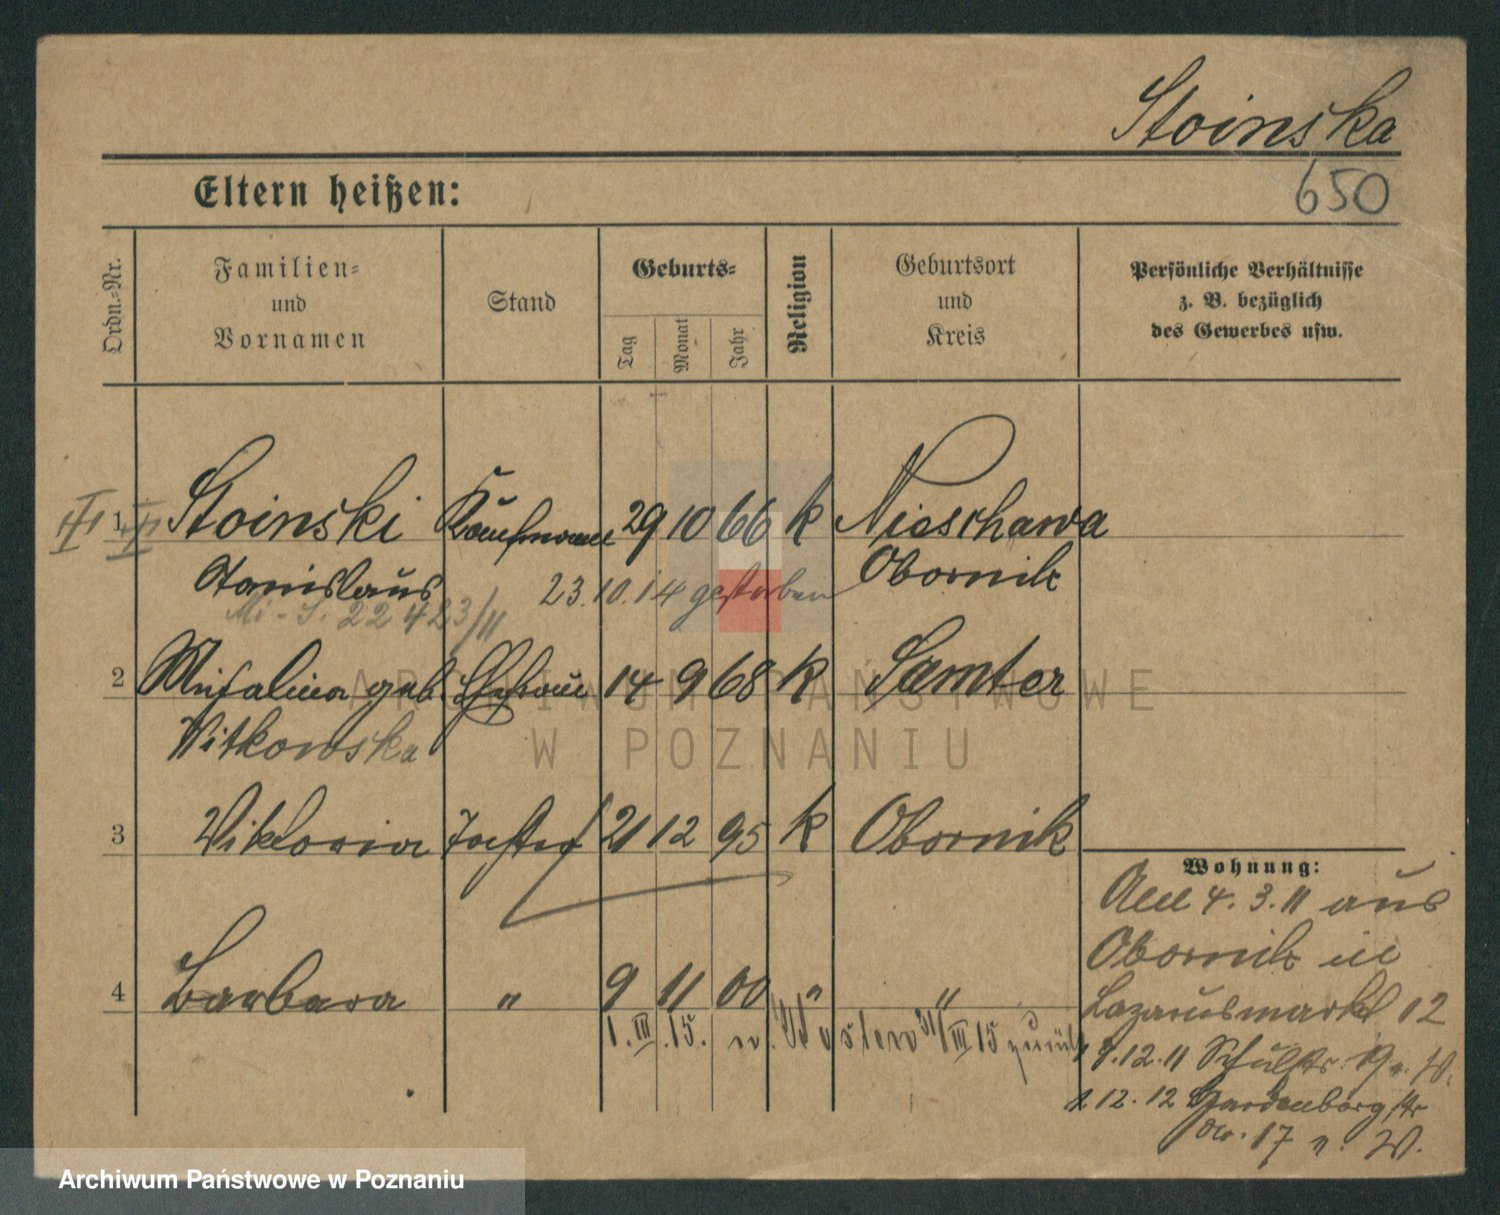 Stoinska
Eltern heißen:
650
Ordn.-Nr.
Familien-
und
Vornamen
Stand
Geburts-
Tag
Monat
Jahr
Religion
Geburtsort
und
Kreis
Persönliche Verhältnisse
z. B. bezüglich
des Gewerbes usw.
1 Stoinski Kaufmann 29 10 66 k Nieschawa
Stanislaus 23.10.14 gestorben Obornik
22 423/11
2 geb. Ehefrau 14 9 68 k Samter
Witkowska
3 Viktoria Tochter 21 12 95 k Obornik
Wohnung:
Am 4.3.11 aus
Obornik in
Lazarusmarkt 12
4 Barbara " 9 11 00 " "
1.III.15. n. 31/III 15 zurück
12.11 Schulstr. 19 n. W.
1 12.12 Gardenbergstr
17 n. W.
ARCHIWUM PAŃSTWOWE
W POZNANIU
Archiwum Państwowe w Poznaniu